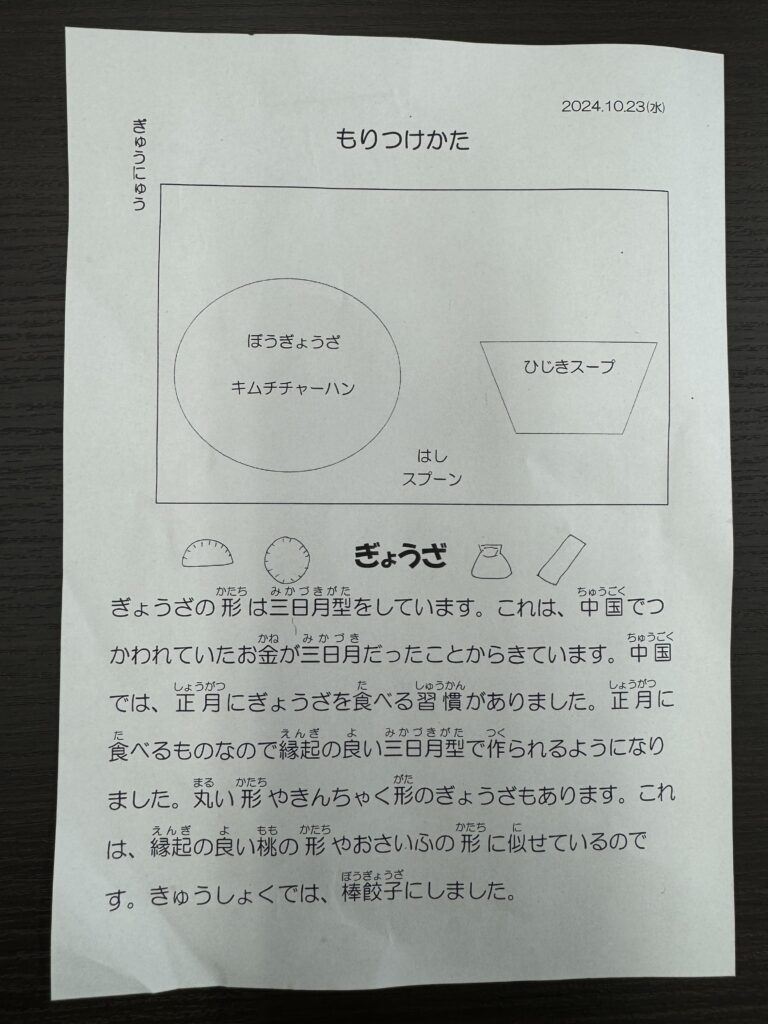 2024.10.23(水)
もりつけかた
ぎゅうにゅう
ぼうぎょうざ
キムチチャーハン
ひじきスープ
はし
スプーン
ぎょうざ
かたち みかづきがた ちゅうごく
ぎょうざの形は三日月型をしています。これは、中国でつ
かね みかづき ちゅうごく
かわれていたお金が三日月だったことからきています。中国
しょうがつ た しゅうかん しょうがつ
では、正月にぎょうざを食べる習慣がありました。正月に
た えんぎ よ みかづきがた つく
食べるものなので縁起の良い三日月型で作られるようになり
まる かたち がた
ました。丸い形やきんちゃく形のぎょうざもあります。これ
えんぎ よ もも かたち かたち に
は、縁起の良い桃の形やおさいふの形に似せているので
ぼうぎょうざ
す。きゅうしょくでは、棒餃子にしました。